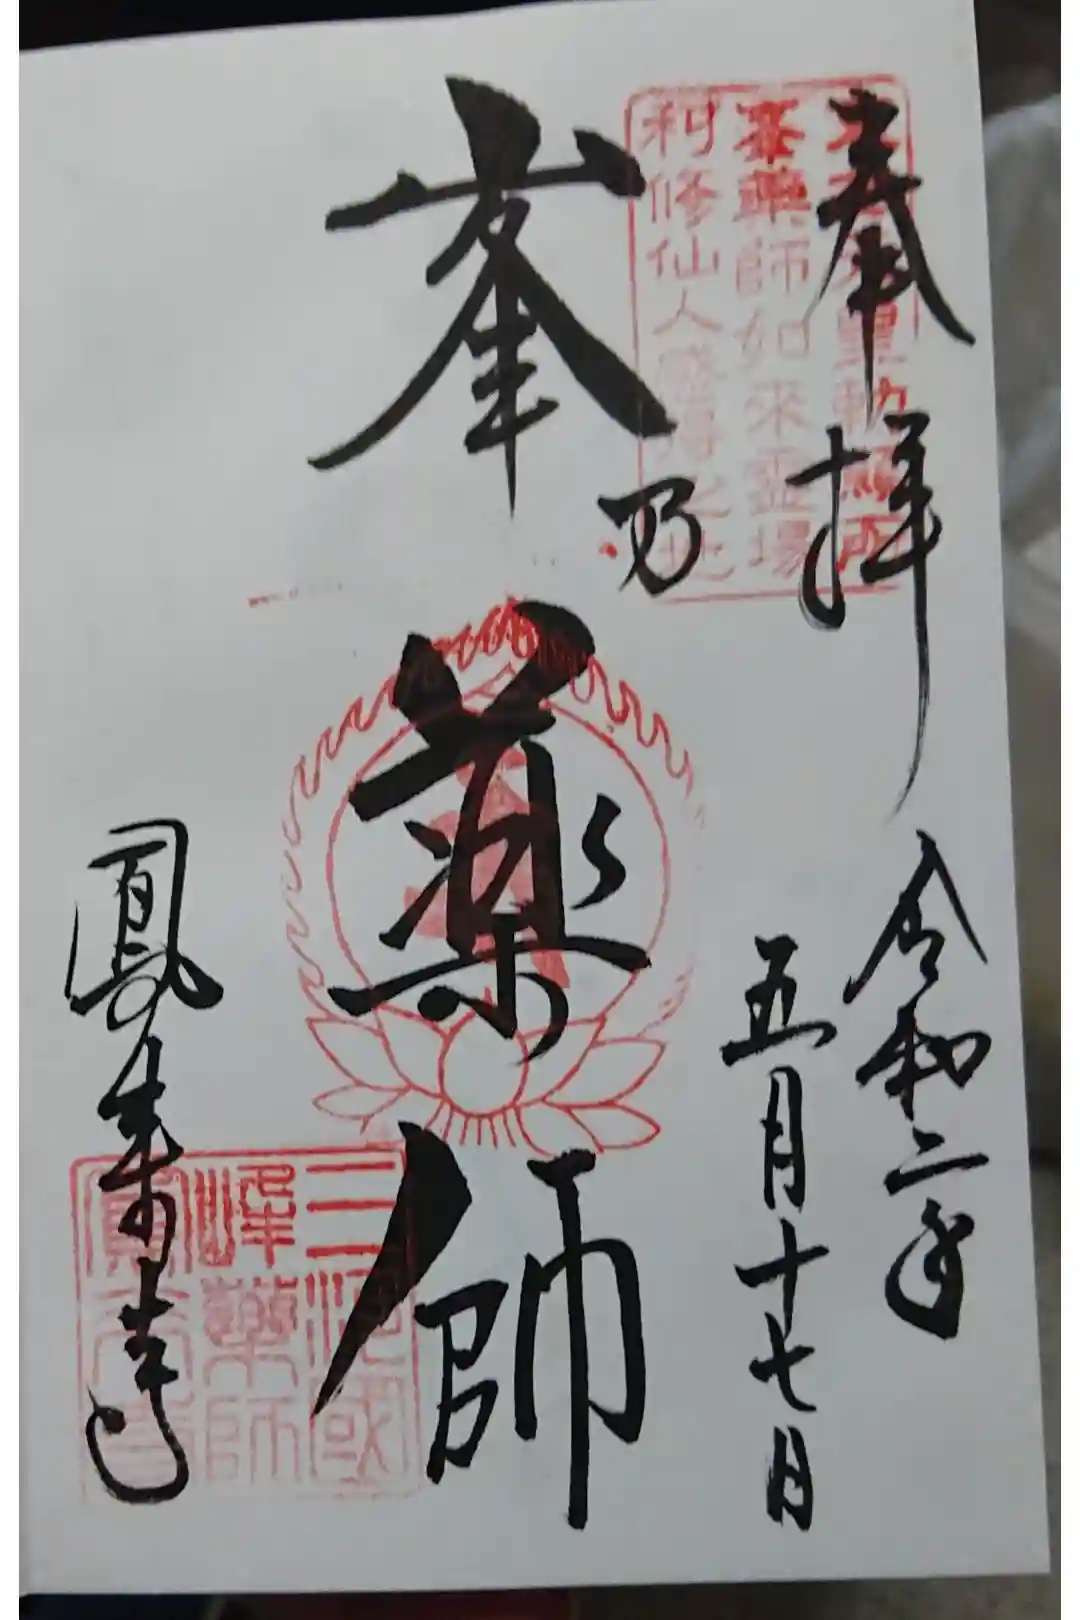 奉拝
令和二年
五月十七日
峯乃薬師
鳳来寺
峯薬師如来霊場
利修仙人感得之地
三河國
峰薬師